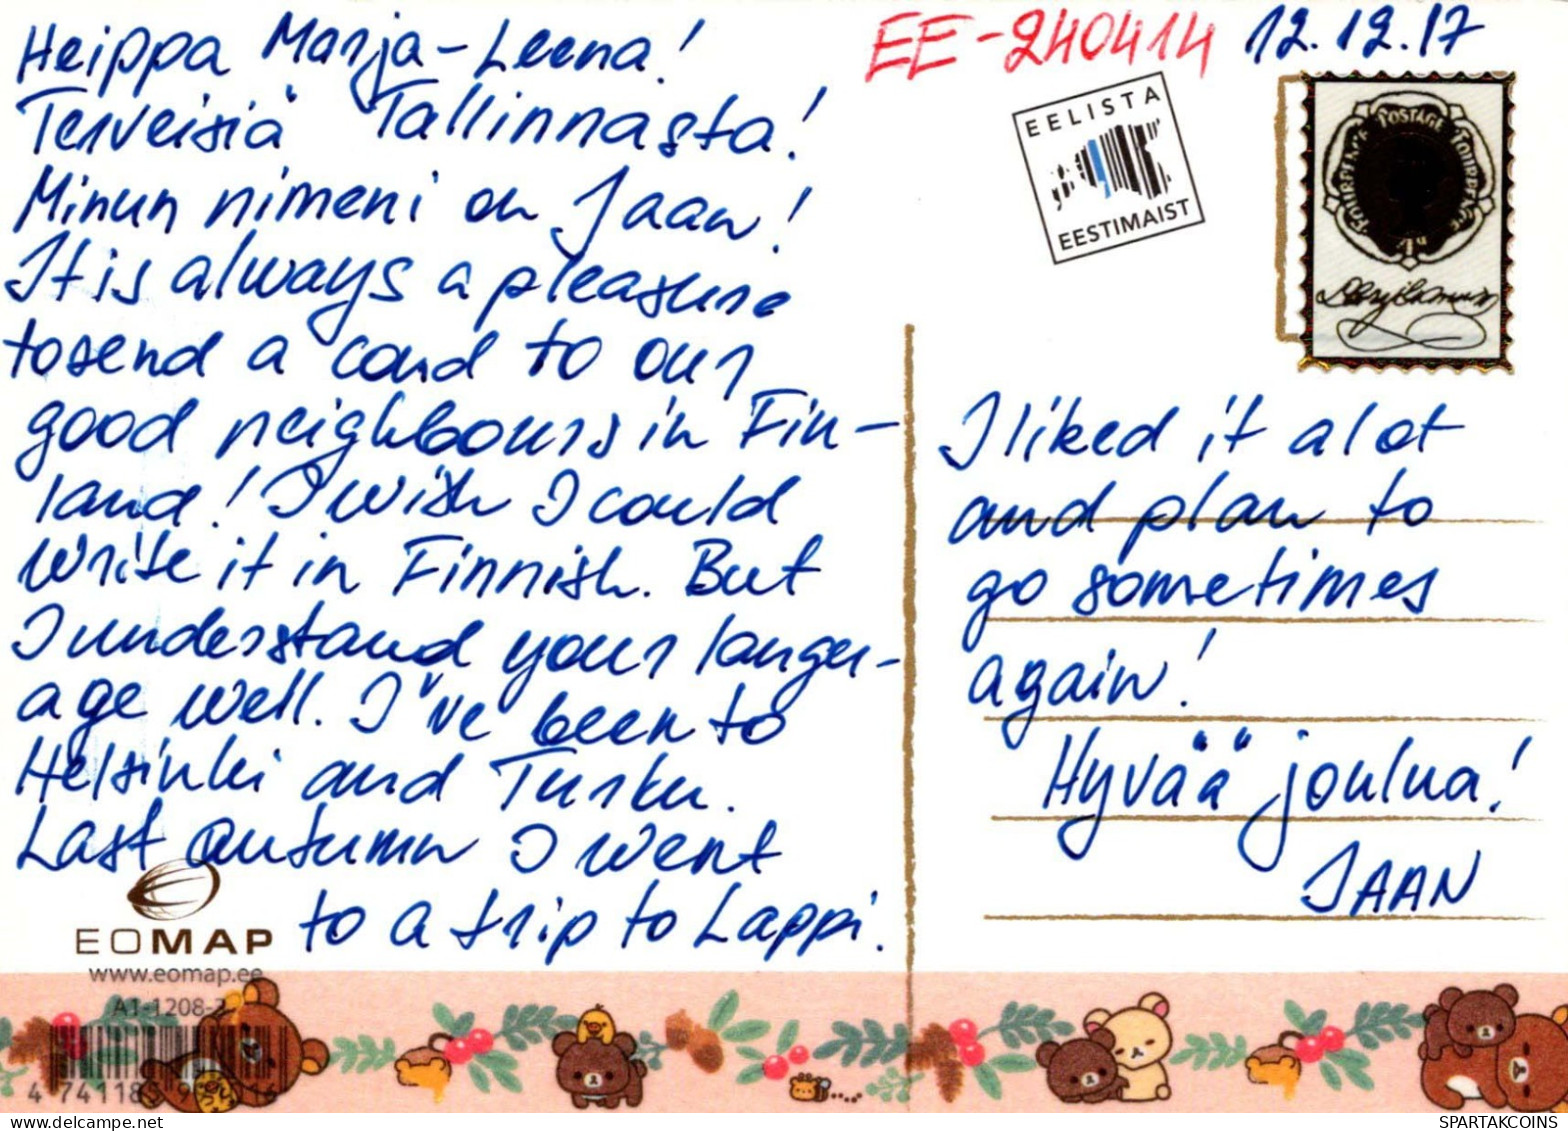 Heippa Marja-Leena!
Terveisiä Tallinnasta!
Minun nimeni on Jaan!
It is always a pleasure
to send a card to our
good neighbours in Fin-
land! I wish I could
write it in Finnish. But
I understand your langu-
age well. I've been to
Helsinki and Turku.
Last autumn I went
to a trip to Lappi.
EOMAP
www.eomap.ee
A1-1208-3
EE-240414 12.12.17
EELISTA
EESTIMAIST
POSTAGE
FOURPENCE
4d
I liked it a lot
and plan to
go sometimes
again!
Hyvää joulua!
JAAN
SPARTAKCOINS